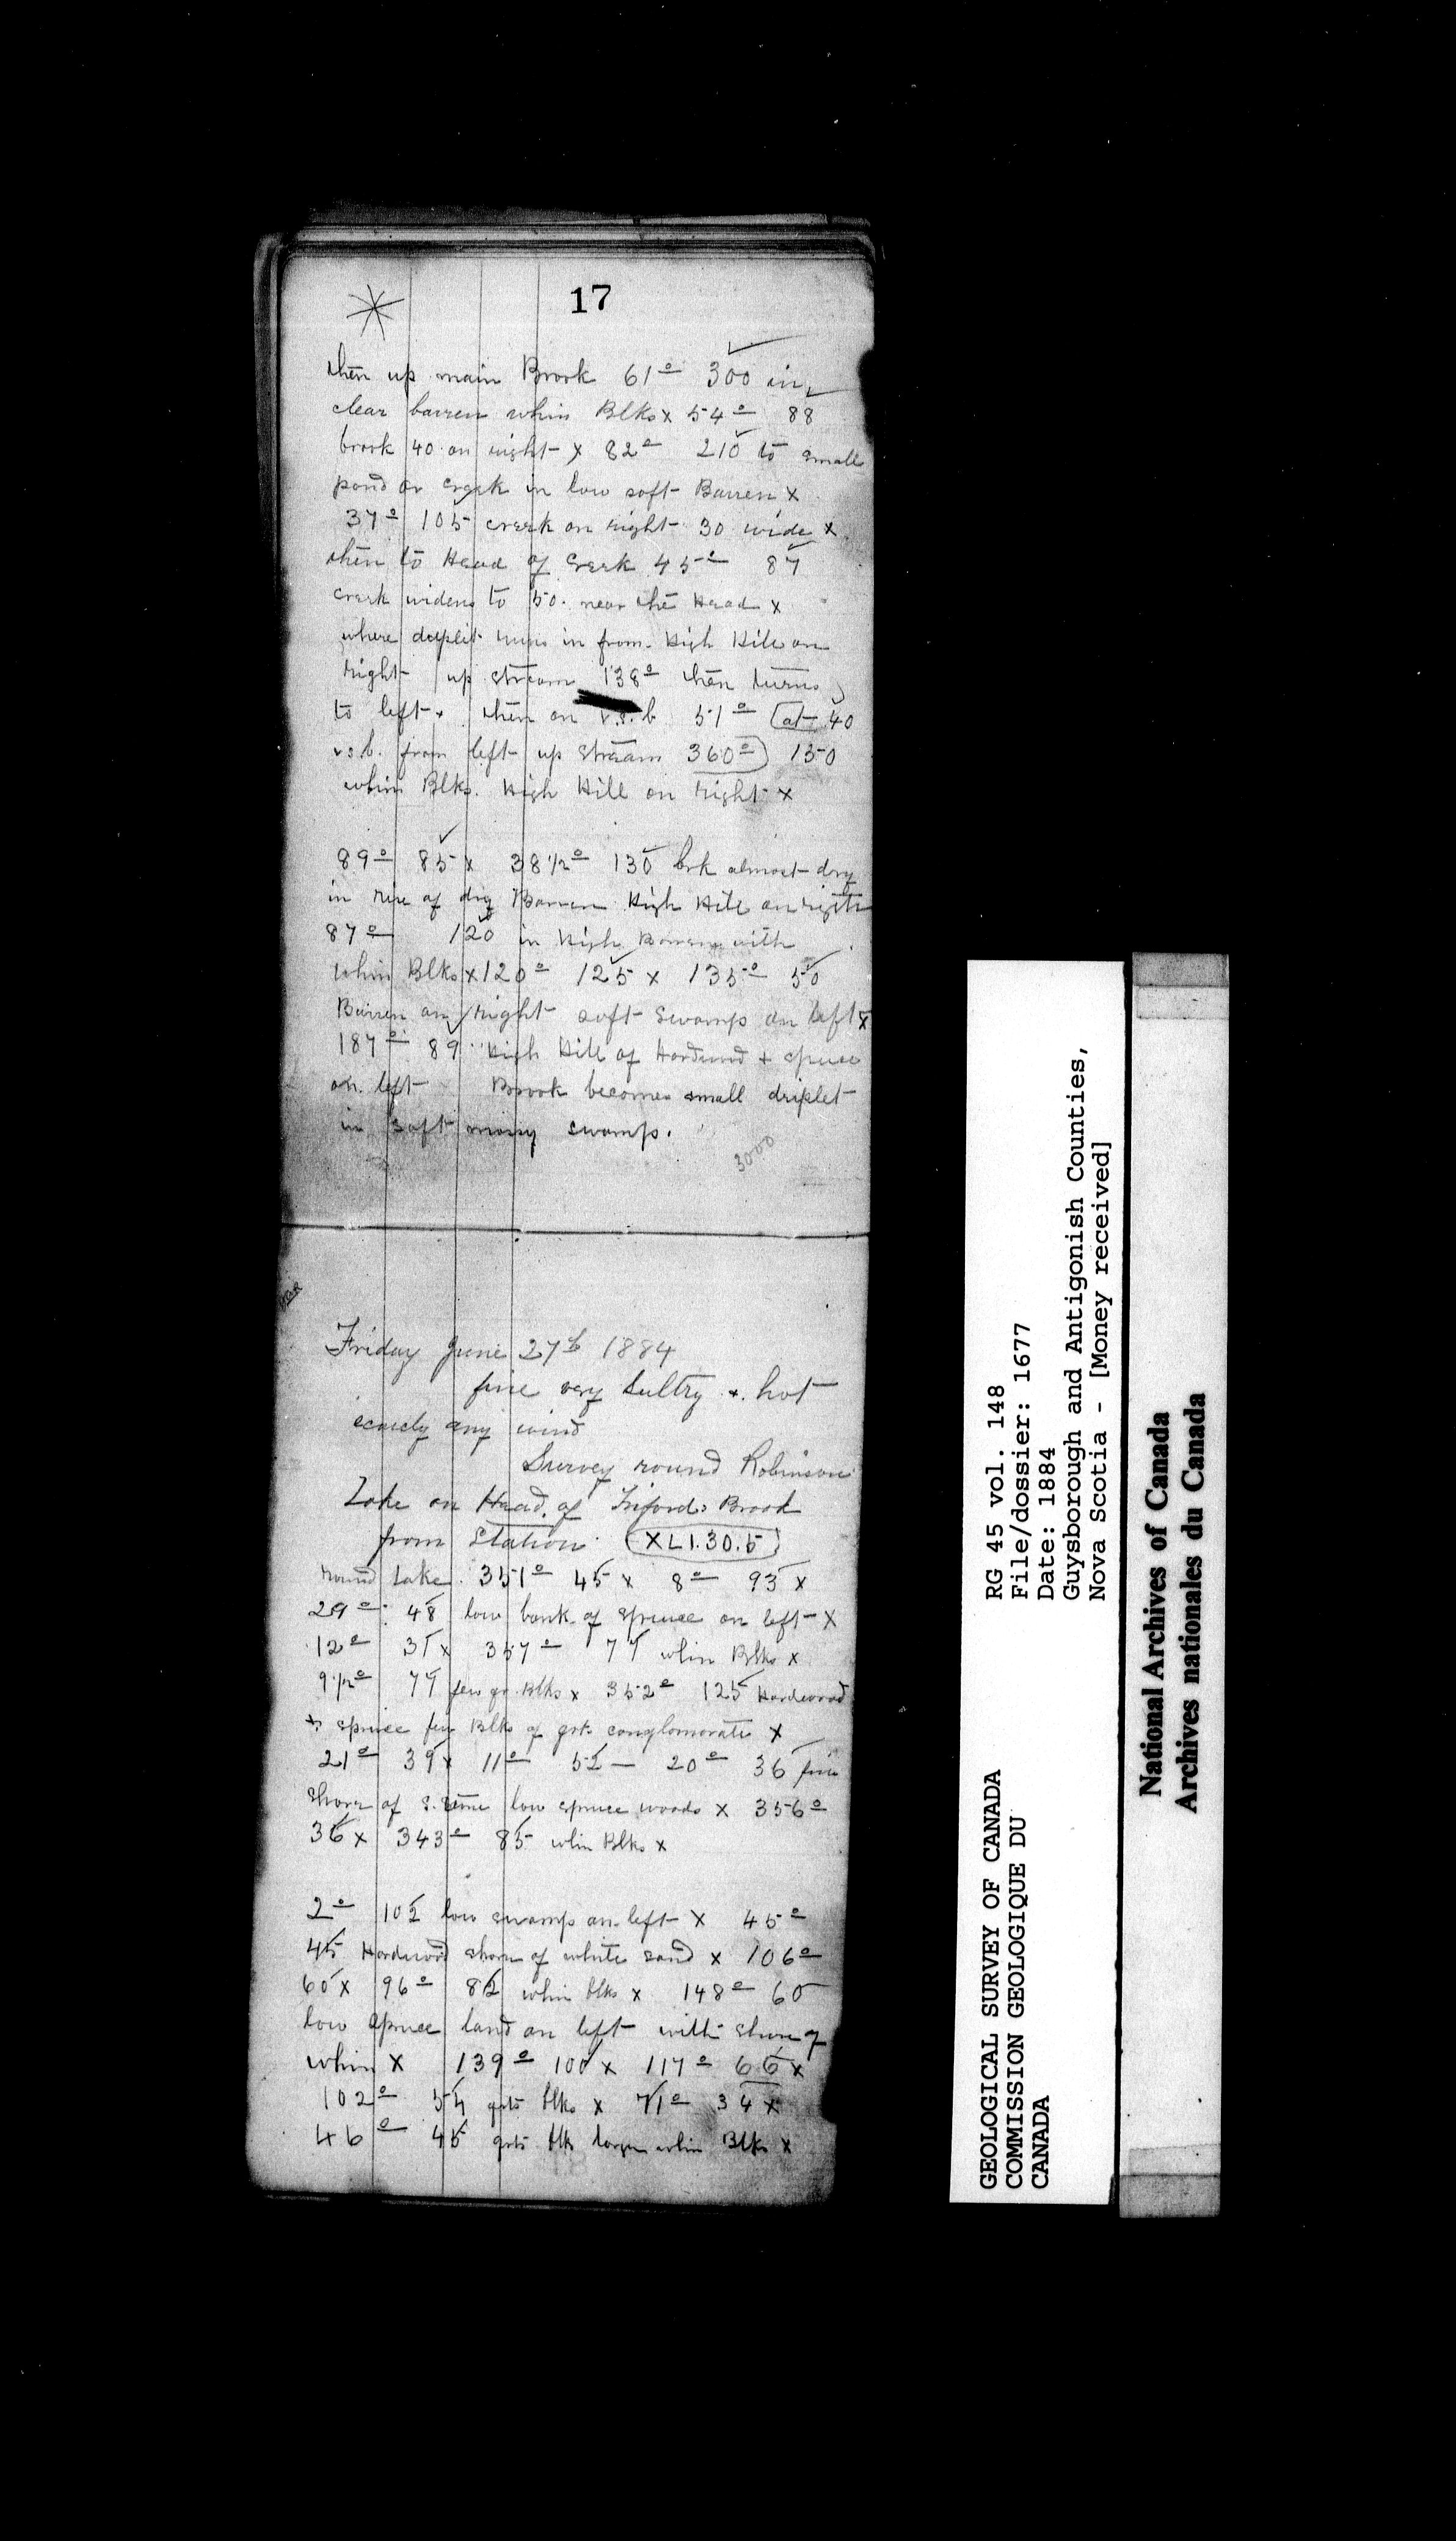 17
then up main Brook 61° 300 in
clear barren whin Blks x 54° 88
brook 40 on right x 82° 210 to small
pond or creek in low soft Barren x
37° 105 creek on right 30 wide x
then to Head of Creek 45° 87
creek widens to 50. near the Head x
where driplet runs in from High Hill on
right up stream 138° then turns
to left. then on v.s.b 51° at 40
v.s.b. from left up stream 360° 150
whin Blks. High Hill on right x
89° 85 x 38 1/2° 130 brk almost dry
in rise of dry Barren High Hill on right
87° 120 in High Barren with
whin Blks x 120° 125 x 135° 50
Barren on right soft swamp on left x
187° 89 High Hill of Hardwood + spruce
on left Brook becomes small driplet
in soft mossy swamp.
3000
Friday June 27th 1884
fine very Sultry + hot
scarcely any wind
Survey round Robinson
Lake on Head of Brook
from Station XL1.30.5
round Lake. 351° 45 x 8° 93 x
29° 48 low bank of spruce on left x
12° 31 x 357° 77 whin Blks x
9 1/2° 77 few gr. Blks x 352° 125 Hardwood
+ spruce few Blks of grts conglomorate x
21° 39 x 11° 52 — 20° 36 fine
shore of s. stone low spruce woods x 356°
36 x 343° 85 whin Blks x
2° 102 low swamp on left x 45°
45 Hardwood shore of white sand x 106°
60 x 96° 82 whin blks x 148° 60
low spruce land on left with shore of
whin x 139° 100 x 117° 66 x
102° 54 grts blks x 71° 34 x
46° 45 grts blks large whin Blks x
RG 45 vol. 148
File/dossier: 1677
Date: 1884
Guysborough and Antigonish Counties,
Nova Scotia - [Money received]
GEOLOGICAL SURVEY OF CANADA
COMMISSION GEOLOGIQUE DU
CANADA
National Archives of Canada
Archives nationales du Canada